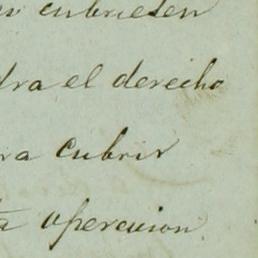 cubriesen
dra el derecho
ra cubrir
ta opercuion.